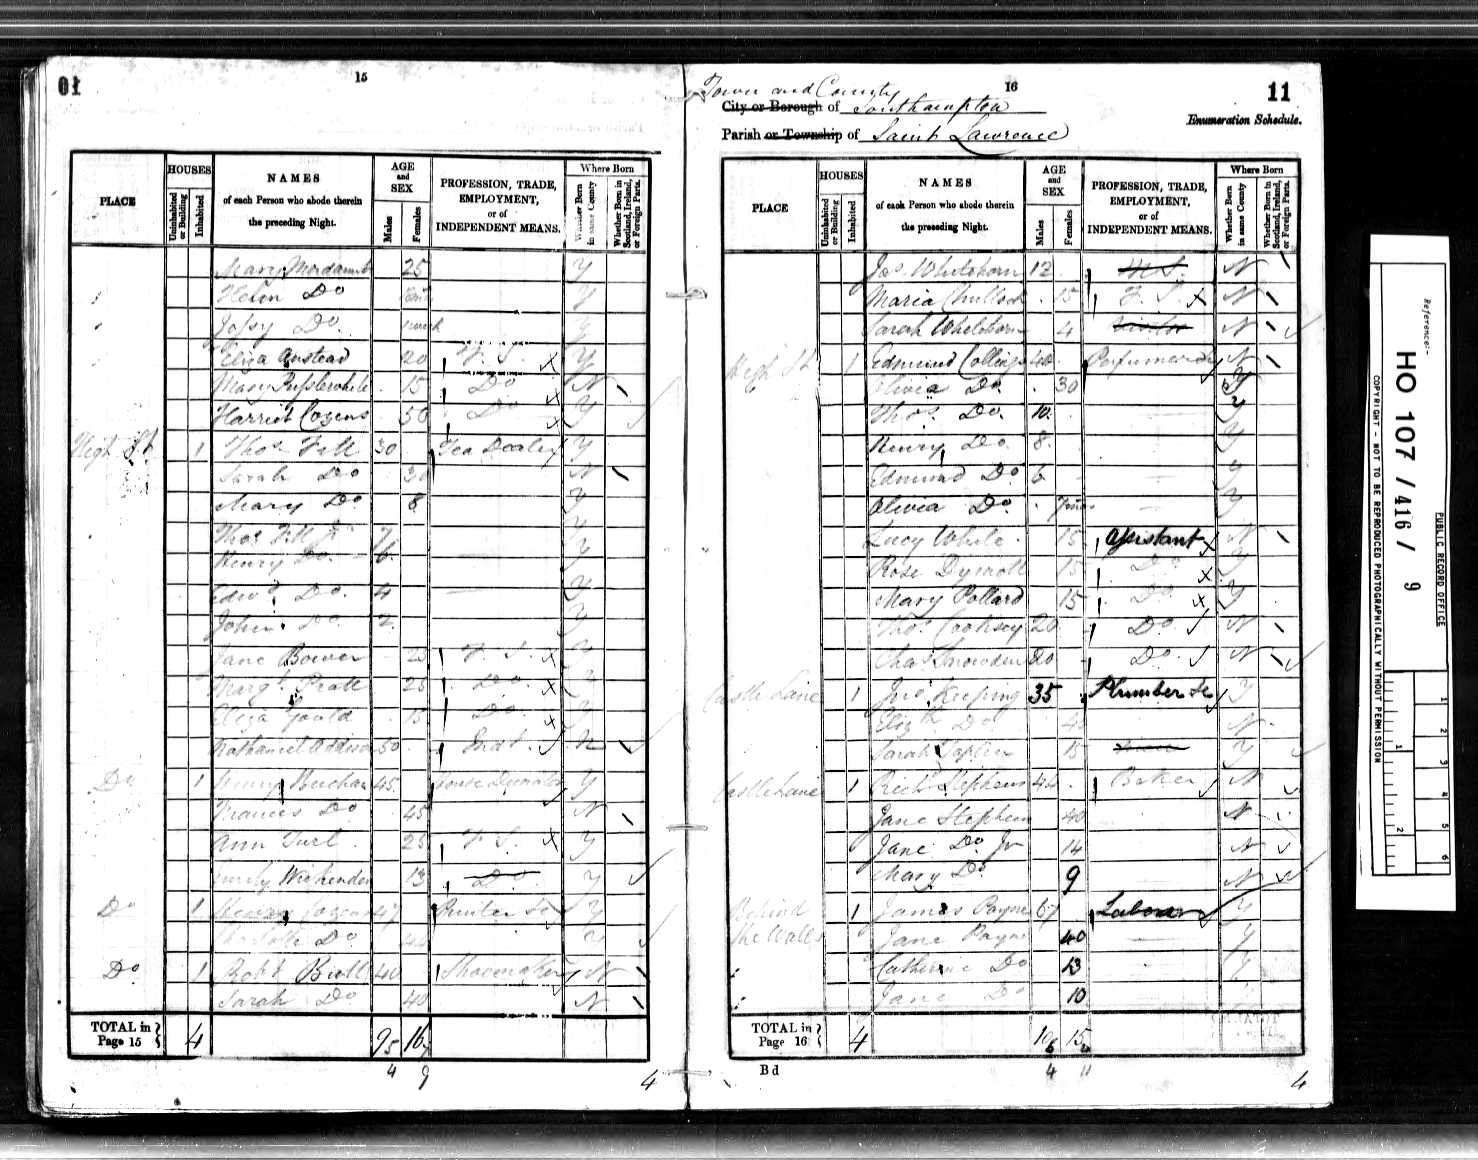 01
15
PLACE
HOUSES
Uninhabited or Building
Inhabited
NAMES
of each Person who abode therein
the preceding Night.
AGE
and
SEX
Males
Females
PROFESSION, TRADE,
EMPLOYMENT,
or of
INDEPENDENT MEANS.
Where Born
Whether Born in same County
Whether Born in Scotland, Ireland, or Foreign Parts.
Mary 25 Y
Helen Do Y
Do Y
Eliza Anstead 20 F. S. Y
Mary 15 Do N
Harriet Cozens 50 Do Y
High St 1 Thos Fill 30 Tea Dealer Y
Sarah Do 30 N
Mary Do 8 Y
Thos Fill Jr 7 Y
Henry Do 6 Y
Edwd Do 4 Y
John Do 2 Y
Jane Bower F. S. Y
Margt Pratt 25 Do Y
Eliza Gould 15 Do Y
Nathaniel Addison 50 Ind. N
Do 1 Henry 45 House Decorator Y
Frances Do 45 N
Ann Turl 25 F. S. Y
Emily Wickenden 13 Do Y
Do 1 Cozens 47 Y
Charlotte Do Y
Do 1 Robt Bull 40 Shoemaker N
Sarah Do 40 N
TOTAL in Page 15 4 9 16
4 9
4
16
11
Town and County
City or Borough of Southampton
Enumeration Schedule.
Parish or Township of Saint Lawrence
PLACE
HOUSES
Uninhabited or Building
Inhabited
NAMES
of each Person who abode therein
the preceding Night.
AGE
and
SEX
Males
Females
PROFESSION, TRADE,
EMPLOYMENT,
or of
INDEPENDENT MEANS.
Where Born
Whether Born in same County
Whether Born in Scotland, Ireland, or Foreign Parts.
Jas. Whitehorn 12 M. S. N
Maria Chullock 15 F. S. N
Sarah Whitehorn 4 N
High St 1 Edmund Collings 40 Perfumer N
Olivia Do. 30 Y
Thos. Do. 10 Y
Henry Do 8 Y
Edmund Do 6 Y
Olivia Do 7 mos Y
Lucy White 15 Assistant N
Rose Dymott 15 Do Y
Mary Pollard 15 Do Y
Thos Cooksey 20 Do N
Chas Snowden 20 Do N
Castle Lane 1 Jno Keeping 35 Plumber &c Y
Elizth Do 40 N
Sarah Taplin 15 Y
Castle Lane 1 Richd Stephens 44 Baker N
Jane Stephens 40 N
Jane Do Jr 14 N
Mary Do 9 N
Behind the Walls 1 James Payne 67 Labourer Y
Jane Payne 40 Y
Catherine Do 13 Y
Jane Do 10
TOTAL in Page 16 4 10 15
4 11
Bd
4
Reference:-
HO 107 / 416 / 9
PUBLIC RECORD OFFICE
COPYRIGHT - NOT TO BE REPRODUCED PHOTOGRAPHICALLY WITHOUT PERMISSION
1
2
3
4
5
6
1
2